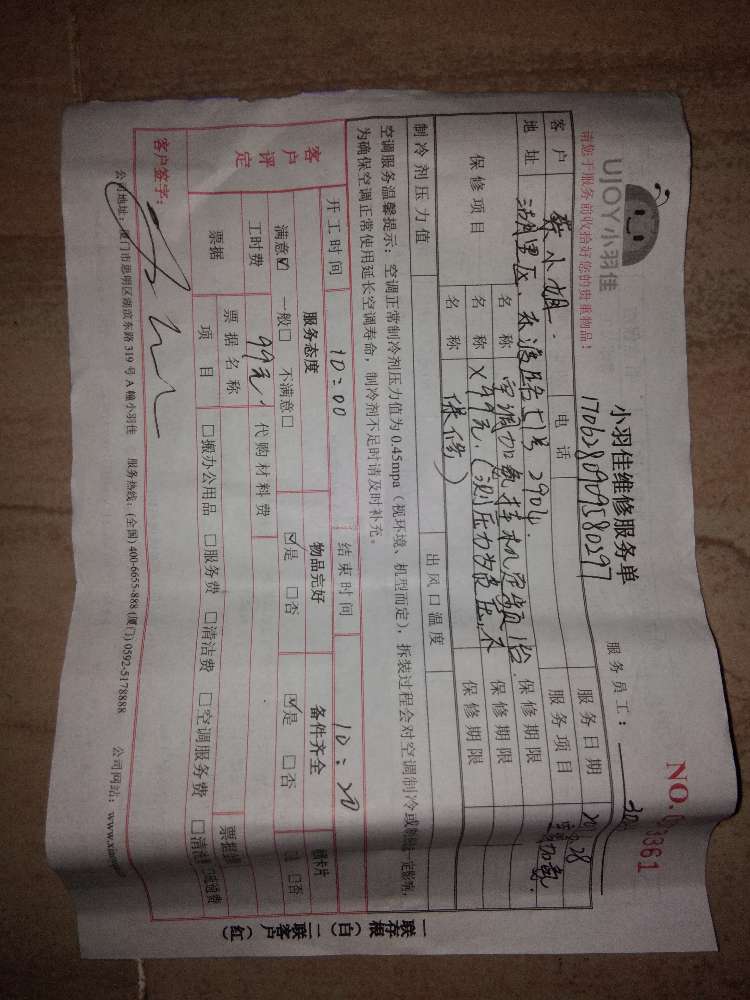 UJOY小羽佳
请您于服务前收拾好您的贵重物品!
小羽佳维修服务单
服务员工:
NO.
客户 小姐. 电话 1706280909580297 服务日期
地址 湖里区、 2904. 服务项目 加氟.
保修项目 名称 空调加氟挂机变频1台. 保修期限
名称 X99元.(测压力为负压,不 保修期限
名称 保修) 保修期限
制冷剂压力值 出风口温度
空调服务温馨提示:空调正常制冷剂压力值为0.45mpa(视环境、机型而定),拆装过程会对空调制冷或制热一定影响,
为确保空调正常使用延长空调寿命,制冷剂不足时请及时补充。
开工时间 10:00 结束时间 10:20
客户评定 服务态度 物品完好 备件齐全 卡片
满意☑ 一般□ 不满意□ ☑是 □否 ☑是 □否 □否
工时费 99元 代购材料费
票据 票据名称 票据
项目 □搬办公用品 □服务费 □清洁费 □空调服务费 □清洁
客户签字:
公司地址:厦门市思明区湖滨东路319号A幢小羽佳 服务热线:(全国)400-6655-888(厦门)0592-5178888 公司网站:
一联存根(白) 二联客户(红)